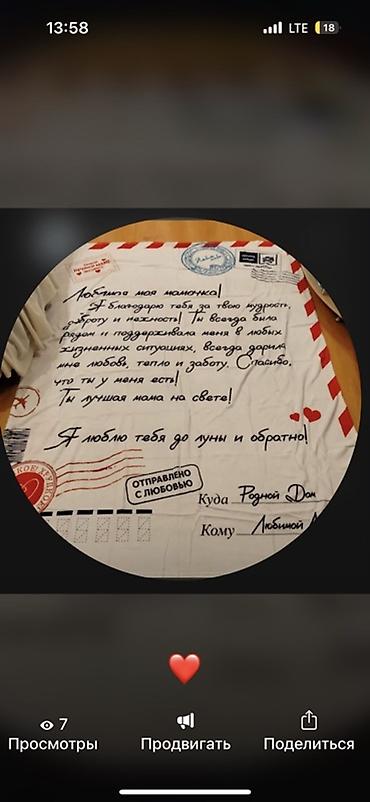 13:58
LTE 18
Любимая моя мамочка!
Я благодарю тебя за твою мудрость,
доброту и нежность! Ты всегда была
рядом и поддерживала меня в любых
жизненных ситуациях, всегда дарила
мне любовь, тепло и заботу. Спасибо,
что ты у меня есть!
Ты лучшая мама на свете!
Я люблю тебя до луны и обратно!
ОТПРАВЛЕНО
С ЛЮБОВЬЮ
Куда Родной Дом
Кому Любимой
7
Просмотры
Продвигать
Поделиться